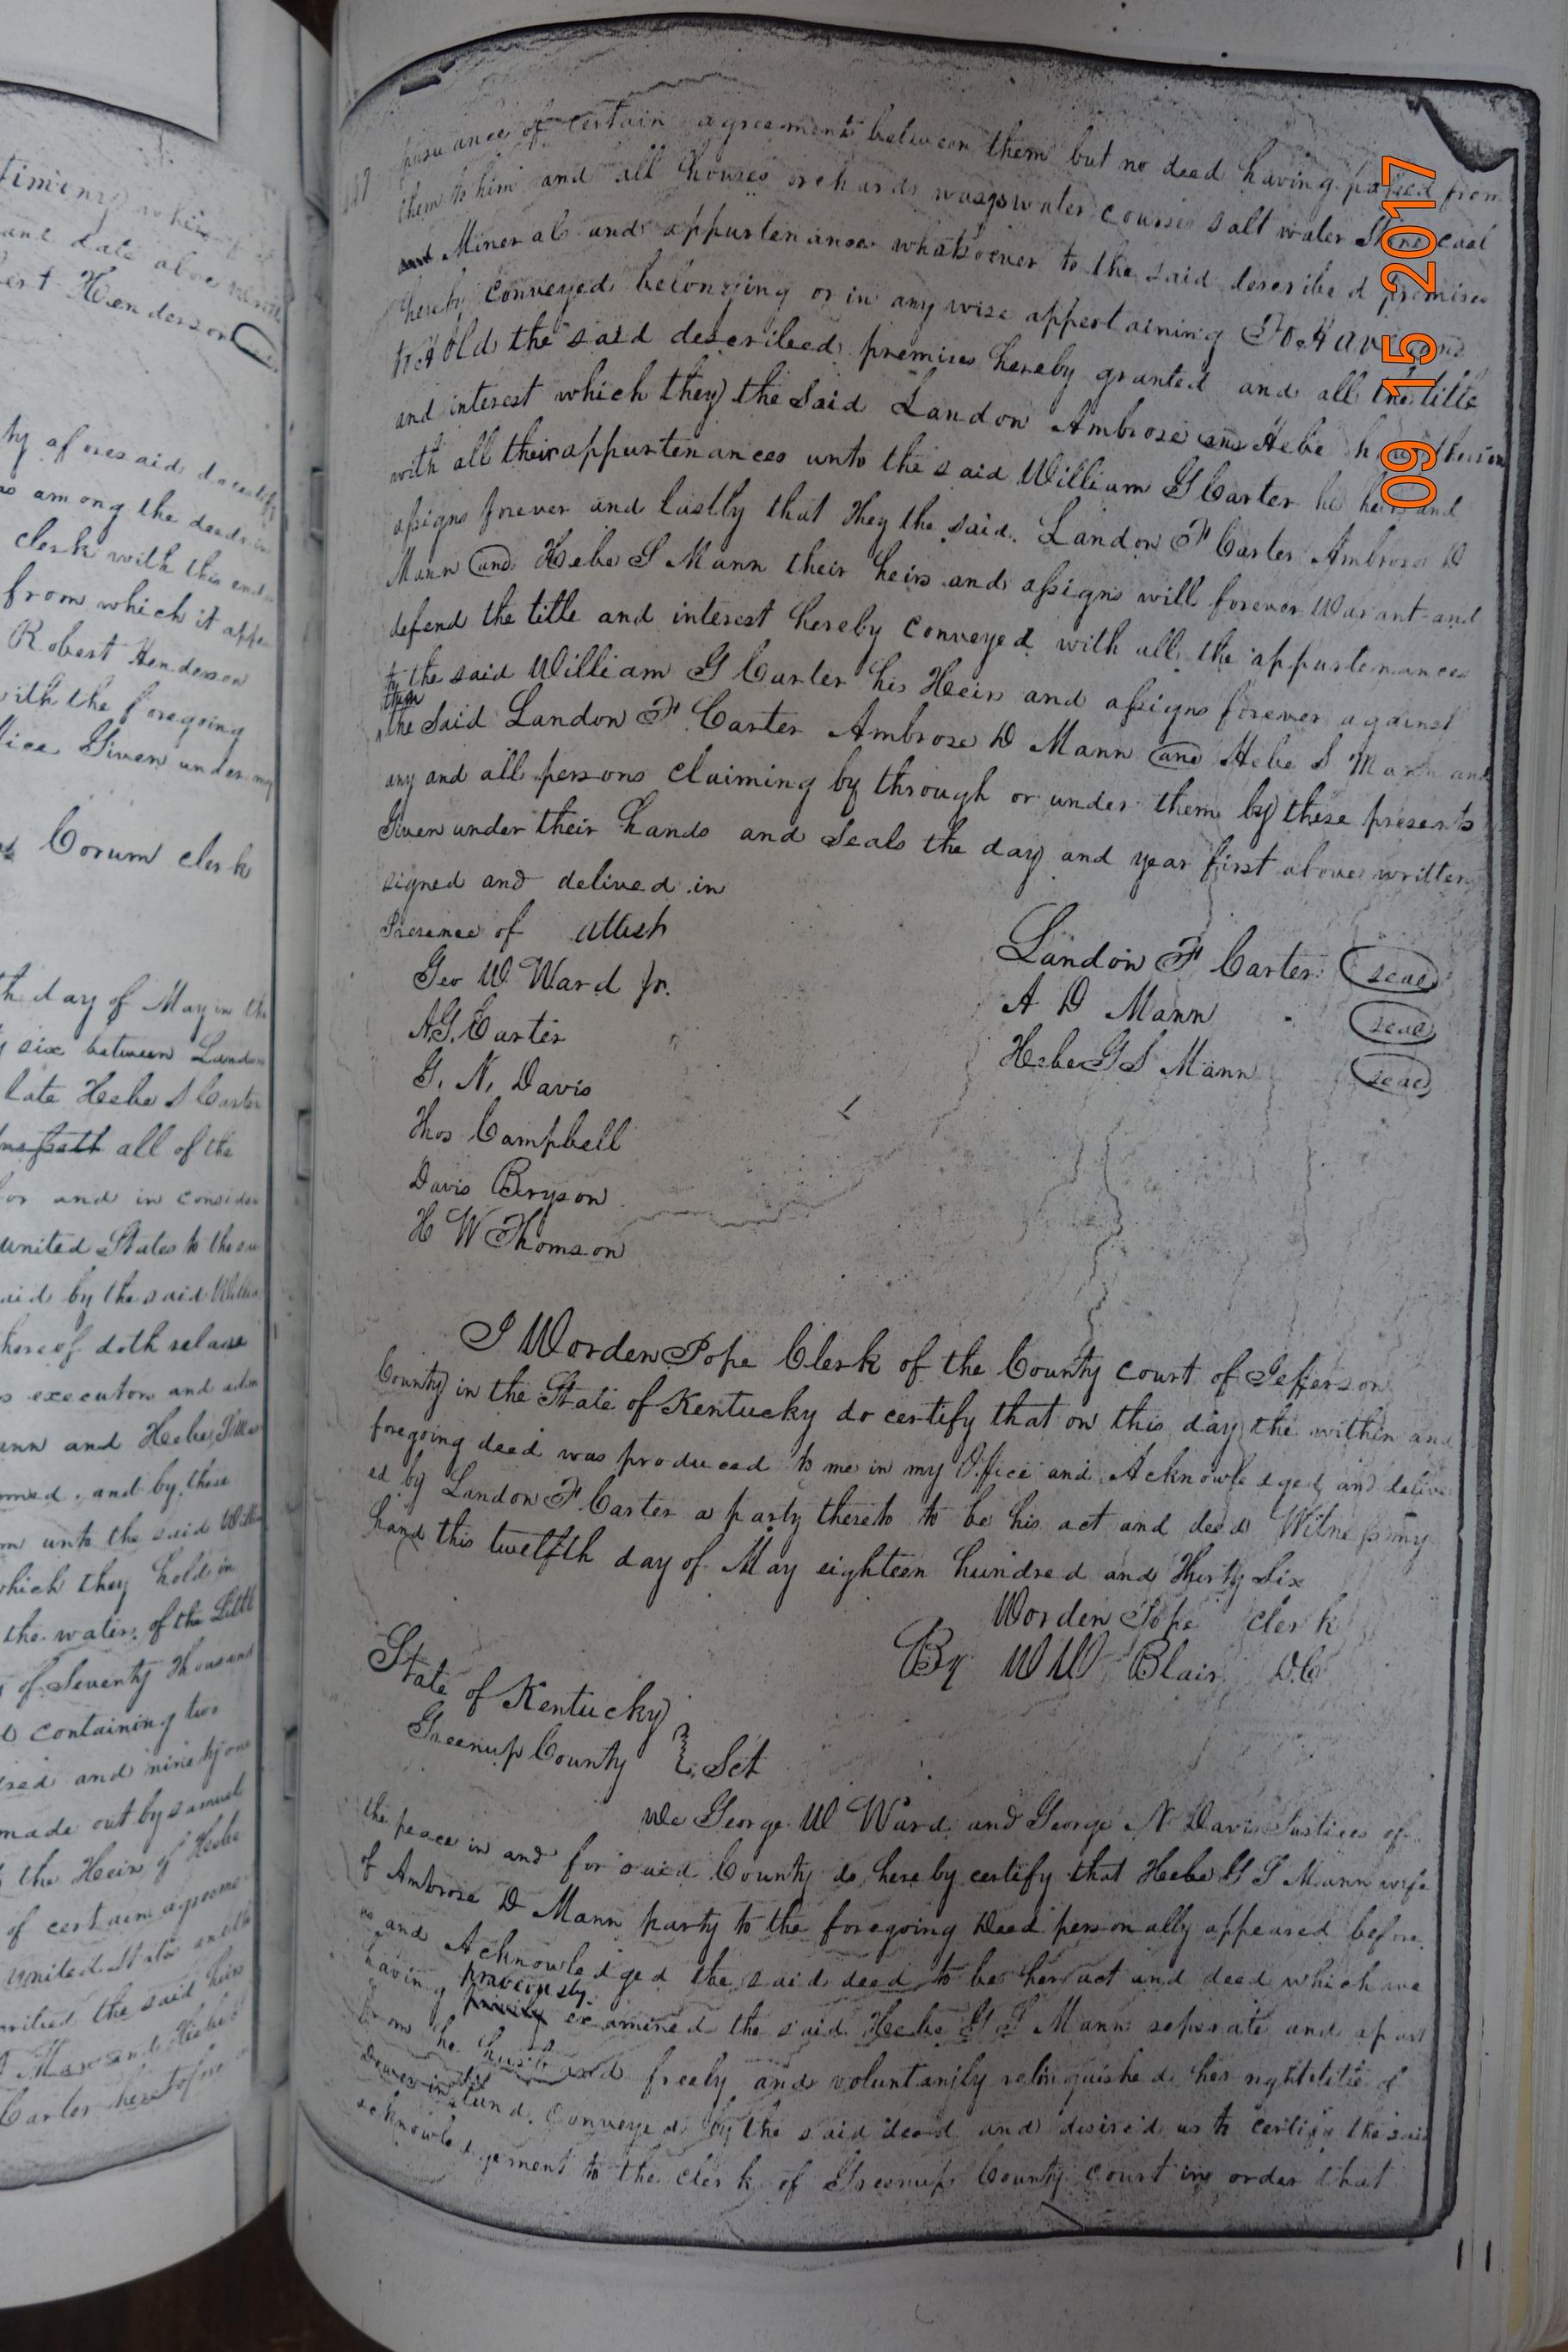 timony whereof
and date above
ert Henderson
ty aforesaid do certify
as among the deeds in
clerk with this
from which it appe
Robert Henderson
with the foregoing
ffice Given under my
Corum clerk
th day of May in the
six between Landon
late Hebe S Carter
all of the
for and in consider
united States to the
aid by the said Willia
hereof doth release
s executors and adm
ann and Hebe S Man
and by these
unto the said Willi
which they hold in
the waters of the Little
of Seventy Thousand
containing two
red and ninety one
made out by Samuel
the Heirs of Hebe
of certain agreeme
United States
the said heirs
Carter heretofore
117
pursuance of certain agreements between them but no deed having passed from
them to him and all houses orchards ways water courses salt water Stone coal
and Minerals and appurtenances whatsoever to the said described premises
hereby conveyed belonging or in any wise appertaining To Have and
to Hold the said described premises hereby granted and all the title
and interest which they the Said Landon Ambrose and Hebe have therein
with all their appurtenances unto the said William G Carter his heirs and
assigns forever and lastly that they the said Landon F Carter Ambrose D
Mann and Hebe S Mann their heirs and assigns will forever Warant and
defend the title and interest hereby conveyed with all the appurtenances
to the said William G Carter his Heirs and assigns forever against
them
the Said Landon F Carter Ambrose D Mann and Hebe S Mann and
any and all persons claiming by through or under them by these presents
Given under their hands and Seals the day and year first above written
signed and delived in
Presence of attest
Landon F Carter seal
Geo W Ward Jr.
A D Mann seal
A.G. Carter
Hebe G S Mann seal
G. N. Davis
Thos Campbell
Davis Bryson
H W Thomson
I Worden Pope Clerk of the County court of Jefferson
County in the State of Kentucky do certify that on this day the within and
foregoing deed was produced to me in my Office and Acknowledged and deliver
ed by Landon F Carter a party thereto to be his act and deed Witness my
hand this twelfth day of May eighteen hundred and Thirty Six
Worden Pope Clerk
By W W Blair D.C
State of Kentucky
Greenup County } Sct
We George W Ward and George N Davis Justices of
the peace in and for said County do hereby certify that Hebe G S Mann wife
of Ambrose D Mann party to the foregoing Deed personally appeared before
us and Acknowledged the said deed to be her act and deed which we
previously
having privily examined the said Hebe G S Mann seperate and apart
from he husband freely and voluntarily relinquished her right title of
Dower in land Conveyed by the said deed and desired us to certify the said
acknowledgement to the clerk of Greenup County Court in order that
111
09 15 2017